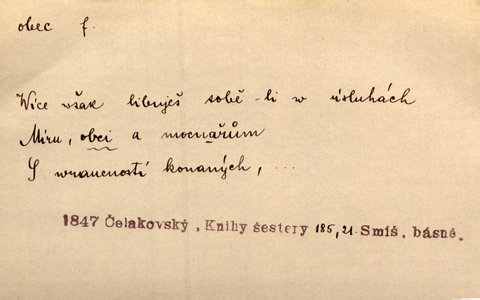 obec f.
Wíce však libuješ sobě-li w úsluhách
Míru, obci a mocnářům
S wraucností konaných, ...
1847 Čelakovský, Knihy šestery 185, 21. Smíš. básně.